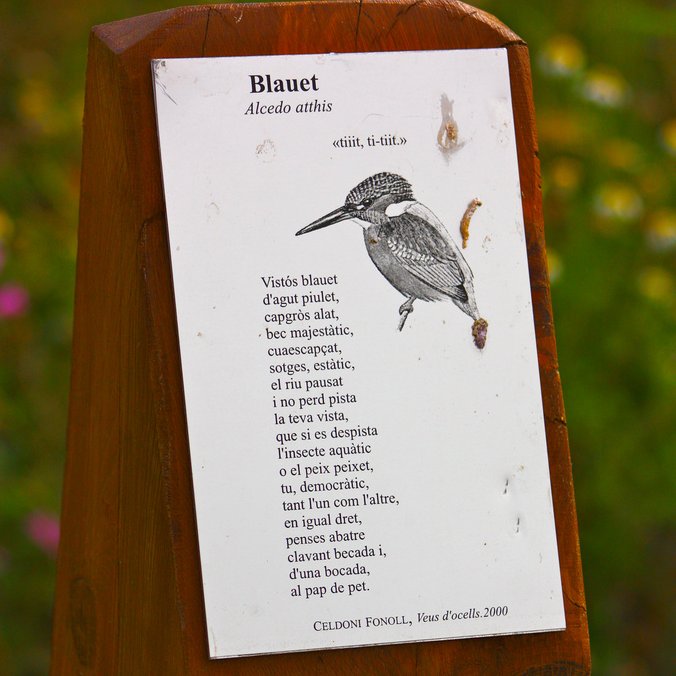 Blauet
Alcedo atthis
«tiiit, ti-tiit.»
Vistós blauet
d'agut piulet,
capgròs alat,
bec majestàtic,
cuaescapçat,
sotges, estàtic,
el riu pausat
i no perd pista
la teva vista,
que si es despista
l'insecte aquàtic
o el peix peixet,
tu, democràtic,
tant l'un com l'altre,
en igual dret,
penses abatre
clavant becada i,
d'una bocada,
al pap de pet.
CELDONI FONOLL, Veus d'ocells.2000